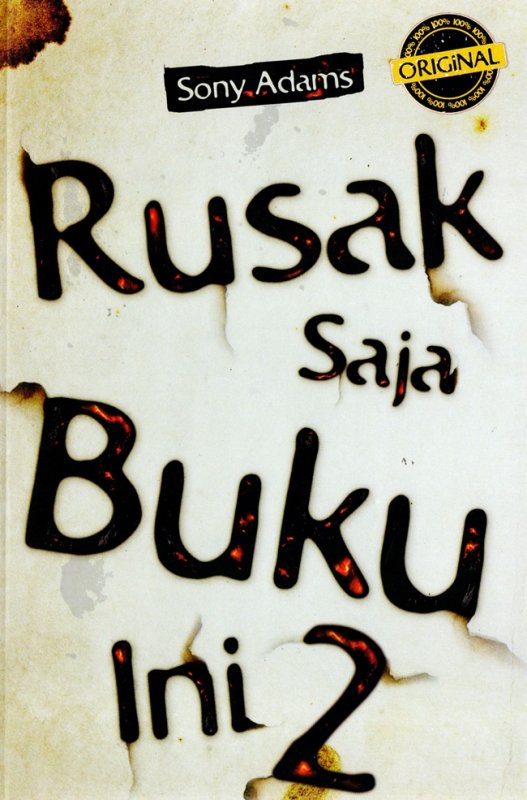 Sony Adams
100% 100% 100% 100% 100%
ORiGiNAL
100% 100% 100% 100% 100%
Rusak
Saja
Buku
Ini 2